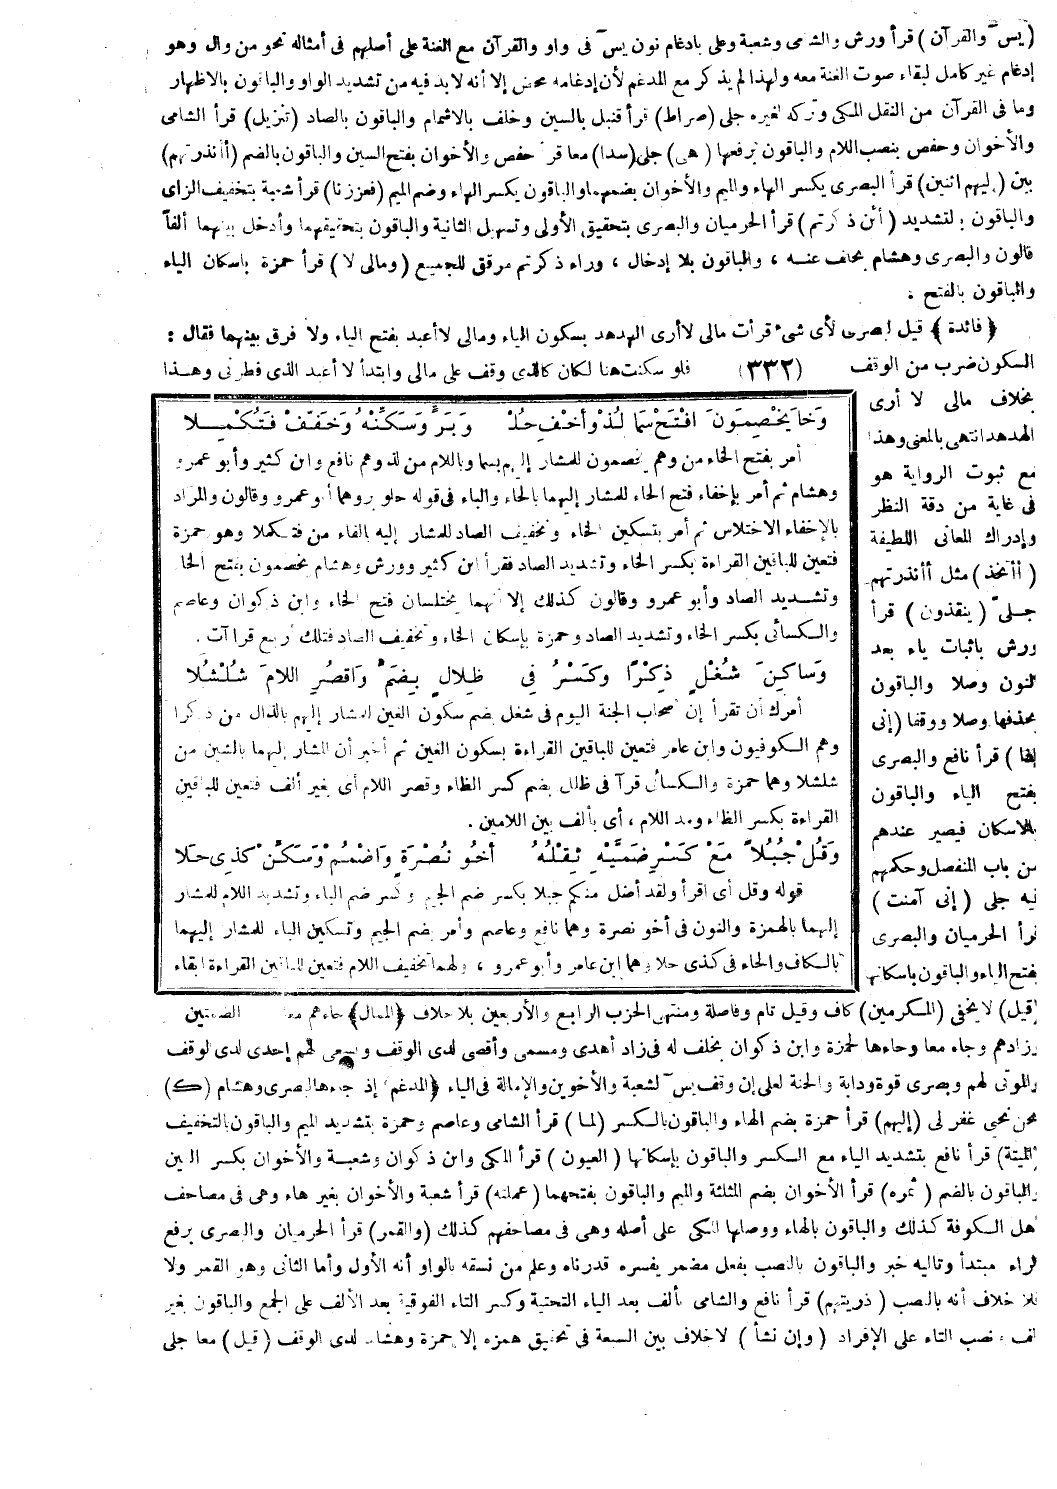 (يس والقرآن) قرأ ورش والشامى وشعبة وعلى بادغام نون يس فى واو والقرآن مع الغنة على أصلهم فى أمثاله نحو من وال وهو
إدغام غير كامل لبقاء صوت الغنة معه ولهذا لم يذكر مع المدغم لأن إدغامه محض إلا أنه لابد فيه من تشديد الواو والباقون بالاظهار
وما فى القرآن من النقل المكى وتركه لغيره جلى (صراط) قرأ قنبل بالسين وخلف بالاشمام والباقون بالصاد (تنزيل) قرأ الشامى
والأخوان وحفص بنصب اللام والباقون برفعها (فهى) جلى (سدا) معا قرأ حفص والأخوان بفتح السين والباقون بالضم (أأنذرتهم)
بين (إليهم اثنين) قرأ البصرى بكسر الهاء والميم والأخوان بضمهما والباقون بكسر الهاء وضم الميم (فعززنا) قرأ شعبة بتخفيف الزاى
والباقون بالتشديد (أئن ذكرتم) قرأ الحرميان والبصرى بتحقيق الأولى وتسهيل الثانية والباقون بتحقيقهما وأدخل بينهما ألفا
قالون والبصرى وهشام بخلف عنه ، والباقون بلا إدخال ، وراء ذكرتم مرقق للجميع (ومالى لا) قرأ حمزة باسكان الياء
والباقون بالفتح .
﴿فائدة﴾ قيل لبصرى لأى شىء قرأت مالى لاأرى الهدهد بسكون الياء ومالى لاأعبد بفتح الياء ولا فرق بينهما فقال :
السكون ضرب من الوقف (٣٣٢) فلو سكنت هنا لكان كالذى وقف على مالى وابتدأ لا أعبد الذى فطرنى وهذا
بخلاف مالى لا أرى
الهدهد انتهى بالمعنى وهذا
مع ثبوت الرواية هو
فى غاية من دقة النظر
وإدراك المعانى اللطيفة
(أأتخذ) مثل أأنذرتهم
جلى (ينقذون) قرأ
ورش باثبات ياء بعد
النون وصلا والباقون
بحذفها وصلا ووقفا (إنى
إذا) قرأ نافع والبصرى
بفتح الياء والباقون
بالاسكان فيصير عندهم
من باب المنفصل وحكمهم
فيه جلى (إنى آمنت)
قرأ الحرميان والبصرى
بفتح الياء والباقون باسكانها
وَخَا يَخْصِمُونَ افْتَحْ سَمَا لُذْ وَأَخْفِ حُلْ وَبَرٍّ وَسَكِّنْهُ وَخَفِّفْ فَتُكْمِلَا
أمر بفتح الخاء من وهم يخصمون للمشار إليهم بسما وباللام من لذ وهم نافع وابن كثير وأبو عمرو
وهشام ثم أمر بإخفاء فتح الخاء للمشار إليهما بالحاء والباء فى قوله حلو بر وهما أبو عمرو وقالون والمراد
بالإخفاء الاختلاس ثم أمر بتسكين الخاء وتخفيف الصاد للمشار إليه بالفاء من فتكملا وهو حمزة
فتعين للباقين القراءة بكسر الخاء وتشديد الصاد فقرأ ابن كثير وورش وهشام يخصمون بفتح الخاء
وتشديد الصاد وأبو عمرو وقالون كذلك إلا أنهما يختلسان فتح الخاء وابن ذكوان وعاصم
والكسائى بكسر الخاء وتشديد الصاد وحمزة بإسكان الخاء وتخفيف الصاد فتلك أربع قراآت .
وَسَاكِنَ شُغْلٍ ذِكْرًا وَكَسْرُ فِى ظِلَالٍ بِضَمٍّ وَاقْصُرِ اللَّامَ شُلْشُلَا
أمرك أن تقرأ إن أصحاب الجنة اليوم فى شغل بضم سكون الغين للمشار إليهم بالذال من ذكرا
وهم الكوفيون وابن عامر فتعين للباقين القراءة بسكون الغين ثم أخبر أن المشار إليهما بالشين من
شلشلا وهما حمزة والكسائى قرآ فى ظلل بضم كسر الظاء وقصر اللام أى بغير ألف فتعين للباقين
القراءة بكسر الظاء ومد اللام ، أى بألف بين اللامين .
وَقُلْ جُبُلًا مَعْ كَسْرِ ضَمَّيْهِ ثِقْلُهُ أَخُو نُصْرَةٍ وَاضْمُمْ وَسَكِّنْ كَذِى حَلَا
قوله وقل أى اقرأ ولقد أضل منكم جبلا بكسر ضم الجيم وكسر ضم الباء وتشديد اللام للمشار
إليهما بالهمزة والنون فى أخو نصرة وهما نافع وعاصم وأمر بضم الجيم وتسكين الباء للمشار إليهما
بالكاف والحاء فى كذى حلا وهما ابن عامر وأبو عمرو ، ولهما تخفيف اللام فتعين للباقين القراءة ابقاء
(قيل) لا يخفى (المكرمين) كاف وقيل تام وفاصلة ومنتهى الحزب الرابع والأربعين بلا خلاف ﴿الممال﴾ جاءهم معا الضمتين
وزادهم وجاء معا وجاءها لحمزة وابن ذكوان بخلف له فى زاد أهدى ومسمى وأقصى لدى الوقف ويسعى لهم إحدى لدى الوقف
والموتى لهم وبصرى قوة ودابة والجنة لعلى إن وقف يس لشعبة والأخوين والإمالة فى الياء ﴿المدغم﴾ إذ جاءها لبصرى وهشام (ك)
نحن نحيى غفر لى (إليهم) قرأ حمزة بضم الهاء والباقون بالكسر (لما) قرأ الشامى وعاصم وحمزة بتشديد الميم والباقون بالتخفيف
(الميتة) قرأ نافع بتشديد الياء مع الكسر والباقون بإسكانها (العيون) قرأ المكى وابن ذكوان وشعبة والأخوان بكسر العين
والباقون بالضم (ثمره) قرأ الأخوان بضم المثلثة والميم والباقون بفتحهما (عملته) قرأ شعبة والأخوان بغير هاء وهى فى مصاحف
أهل الكوفة كذلك والباقون بالهاء ووصلها المكى على أصله وهى فى مصاحفهم كذلك (والقمر) قرأ الحرميان والبصرى برفع
الراء مبتدأ وتاليه خبر والباقون بالنصب بفعل مضمر يفسره قدرناه وعلم من نسقه بالواو أنه الأول وأما الثانى وهو القمر ولا
فلا خلاف أنه بالنصب (ذريتهم) قرأ نافع والشامى بألف بعد الياء التحتية وكسر التاء الفوقية بعد الألف على الجمع والباقون بغير
ألف ونصب التاء على الإفراد (وإن نشأ) لاخلاف بين السبعة فى تحقيق همزه إلا حمزة وهشام لدى الوقف (قيل) معا جلى